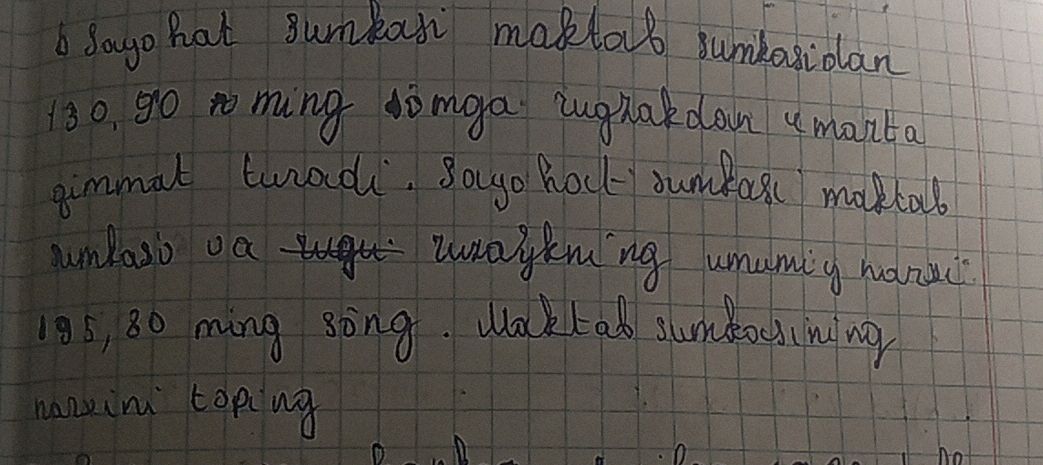 6 Sayohat sumkasi maktab sumkasidan
130,90 ming sömga zugrakdan 4 marta
qimmat turadi. Sayohat sumkasi maktab
sumkasi va ning umumiy narxi
195,80 ming söng. Maktab sumkasining
narxini toping